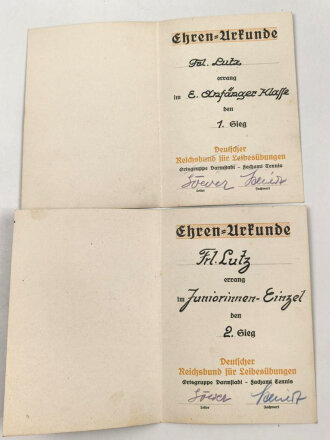 Ehren-Urkunde
Frl. Lutz
errang
im E. Anfänger Klasse
den
1. Sieg
Deutscher
Reichsbund für Leibesübungen
Ortsgruppe Darmstadt - Fachamt Tennis
Leiter Fachwart
Ehren-Urkunde
Frl. Lutz
errang
im Juniorinnen-Einzel
den
2. Sieg
Deutscher
Reichsbund für Leibesübungen
Ortsgruppe Darmstadt - Fachamt Tennis
Leiter Fachwart